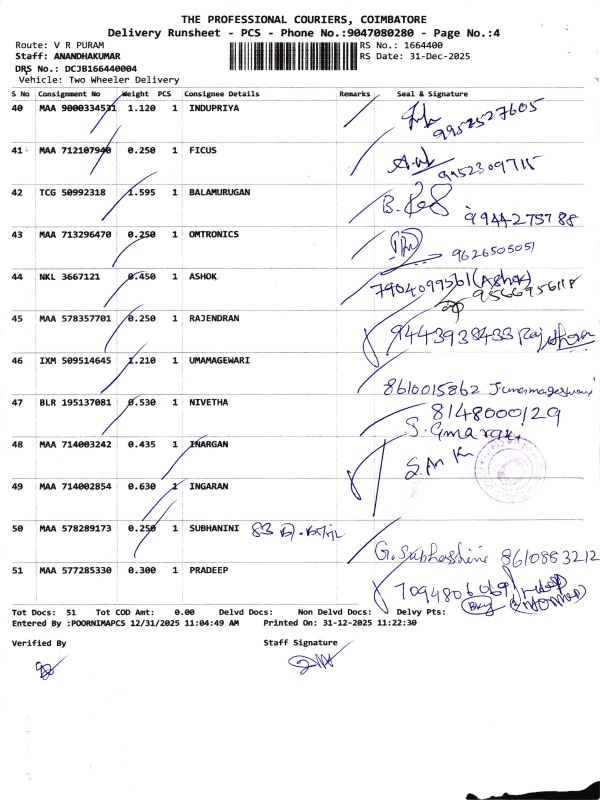 THE PROFESSIONAL COURIERS, COIMBATORE
Delivery Runsheet - PCS - Phone No.:9047080280 - Page No.:4
Route: V R PURAM RS No.: 1664400
Staff: ANANDHAKUMAR RS Date: 31-Dec-2025
DRS No.: DCJB166440004
Vehicle: Two Wheeler Delivery
S No Consignment No Weight PCS Consignee Details Remarks Seal & Signature
40 MAA 9000334531 1.120 1 INDUPRIYA
9952527605
41 MAA 712107940 0.250 1 FICUS
9952309715
42 TCG 50992318 1.595 1 BALAMURUGAN
9944275788
43 MAA 713296470 0.250 1 OMTRONICS
9626505051
44 NKL 3667121 0.450 1 ASHOK
7904099561 (Ashok)
9566956118
45 MAA 578357701 0.250 1 RAJENDRAN
9443938433
46 IXM 509514645 1.210 1 UMAMAGEWARI
8610015862
47 BLR 195137081 0.530 1 NIVETHA
8148000129
48 MAA 714003242 0.435 1 INARGAN
49 MAA 714002854 0.630 1 INGARAN
50 MAA 578289173 0.250 1 SUBHANINI 83
G. Subhasshine 8610883212
51 MAA 577285330 0.300 1 PRADEEP
7094806069
Tot Docs: 51 Tot COD Amt: 0.00 Delvd Docs: Non Delvd Docs: Delvy Pts:
Entered By :POORNIMAPCS 12/31/2025 11:04:49 AM Printed On: 31-12-2025 11:22:30
Verified By Staff Signature